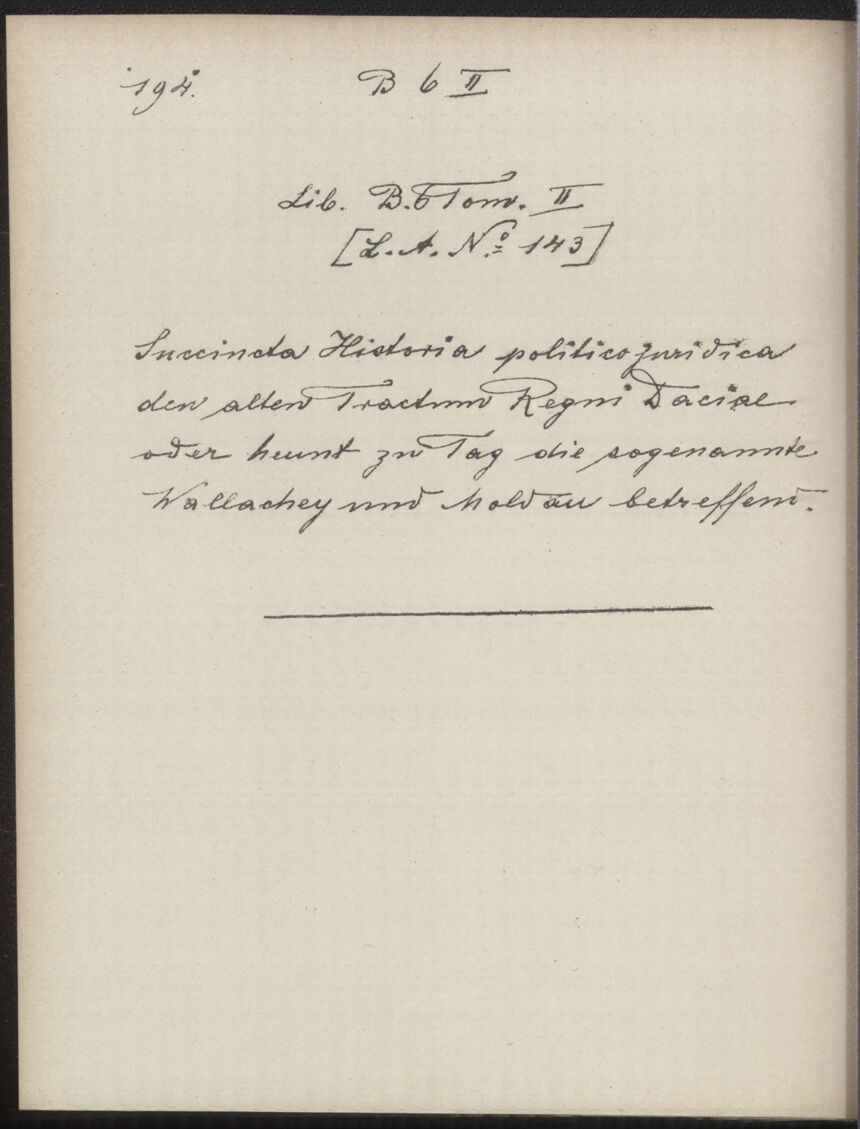 194. B 6 II
Lib. B. 6 Tom. II
[L. A. No 143]
Succincta Historia politico juridica
den alten Tractum Regni Daciae
oder heunt zu Tag die sogenannte
Wallachey und Moldau betreffend.